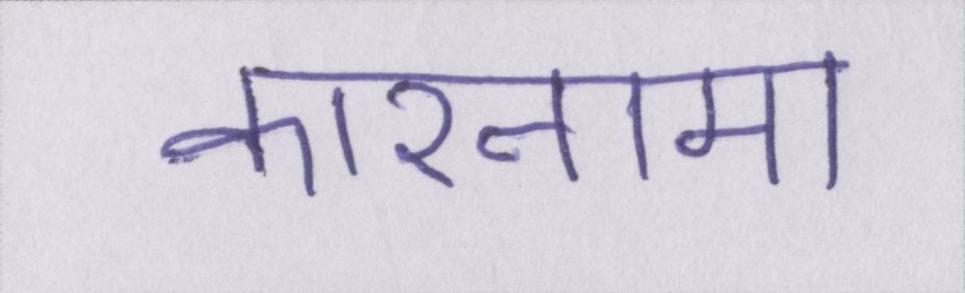 कारनामा